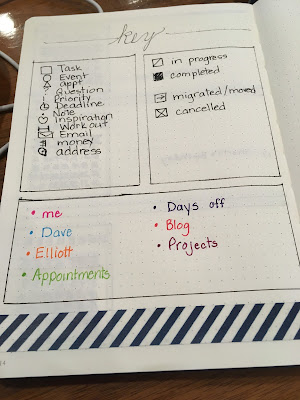 key
Task
Event
appt
Question
Priority
Deadline
Note
Inspiration
Work out
Email
money
address
in progress
completed
migrated/moved
cancelled
• me
• Dave
• Elliott
• Appointments
• Days off
• Blog
• Projects